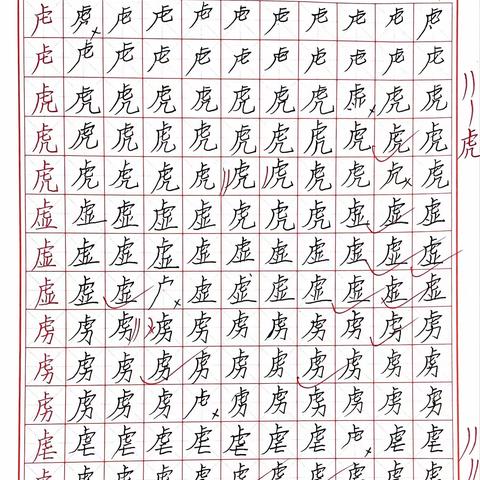 虍虍虍虍虍虍虍虍虍虍虍
虍虍虍虍虍虍虍虍虍虍虍
虎虎虎虎虎虎虎虎虎虎
虎虎虎虎虎虎虎虎虎虎虎
虎
虎虎虎虎虎虎虎虎虎虎
虚虚虚虚虚虎虎虎虚虚虚
虚虚虚虚虚虚虚虚虚虚虚
虚虚虚虚虚虚虚虚虚虚
虏虏虏虏虏虏虏虏虏虏虏
虏虏虏虏虏虏虏虏虏虏虏
虏虏虏虏虍虏虏虏虏虏虏
虐虐虐虐虐虐虐虐虍虐虐